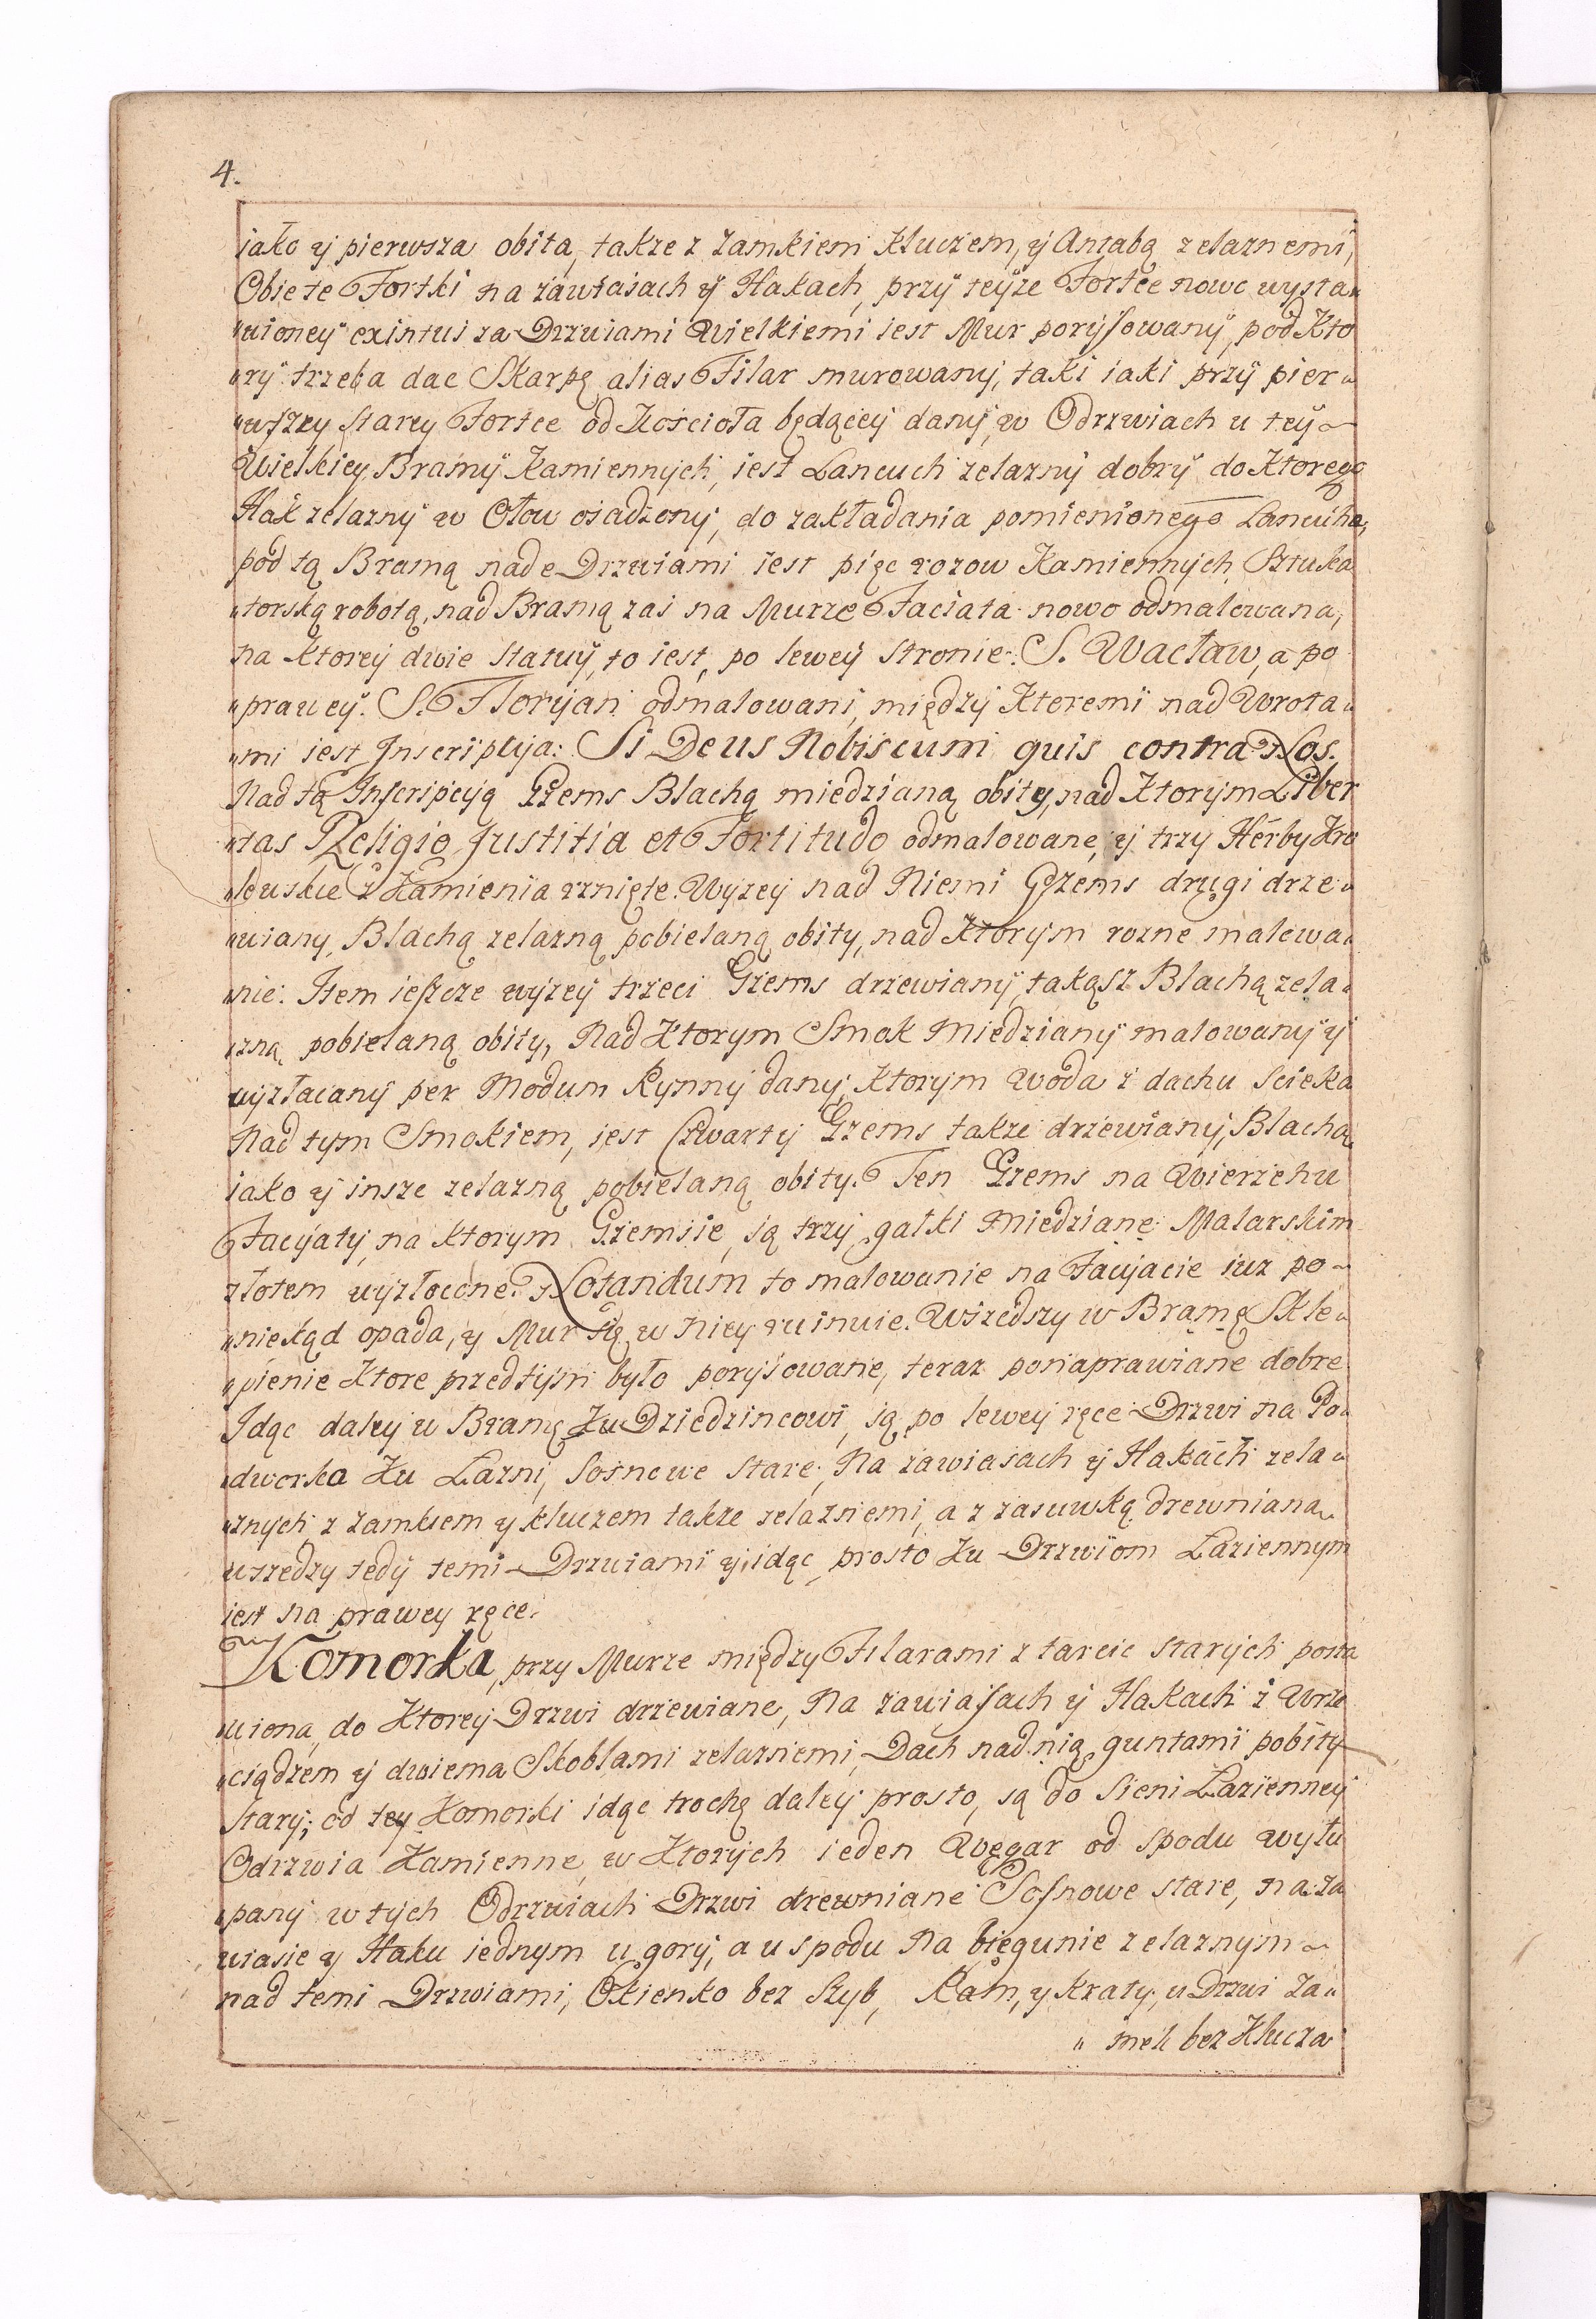 4.
iako y pierwsza obita, takze z Zamkiem Kluczem, y Antabą zelaznemi,
Obie te Fortki na zawiasach ÿ Hakach, przÿ teÿze Fortce nowo wysta„
„wioney exintus za Drzwiami Wielkiemi iest Mur porysowanÿ, pod Kto
„rÿ trzeba dac Skarpę alias Filar murowany, taki iaki przÿ pier„
„wszey Starey Fortce od Kościoła będącey danÿ, w Odrzwiach u teÿ
Wielkiey Bramÿ Kamiennych, iest Lancuch zelazny dobrÿ do Ktorego
Hak zelaznÿ w Ołow osadzony, do zakładania pomienionego Lancucha,
pod tą Bramą nade Drzwiami iest pięc rozow Kamiennych Sztuka
„torską robotą, nad Bramą zas na Murze Faciata nowo odmalowana,
na Ktorey dwie Statuÿ, to iest, po lewey Stronie: S. Wacław, a po
„prawey. S. Floryan odmalowani, między Ktoremi nad Wrota„
„mi iest Inscripcyja: Si Deus Nobiscum quis contra Nos.
Nad tą Inscripcyą Gzems Blachą miedzianą obity, nad Ktorym Liber
„tas Religio Justitia et Fortitudo odmalowane, y trzy Herby Kro
„lewskie z Kamienia rznięte. Wyzey nad Niemi Gzems drugi drze„
„wiany, Blachą zelazną pobielaną obity, nad Ktorym rozne malowa„
„nie. Item ieszcze wyzey trzeci Gzems drzewiany, takąsz Blachą zela„
„zną pobielaną obity, Nad Ktorym Smok Miedziany malowanÿ y
wyzłacany per Modum Rynny dany, Ktorym Woda z dachu scieka
Nad tym Smokiem, iest Czwarty Gzems takze drzewiany, Blachą
iako y insze zelazną pobielaną obity. Ten Gzems na Wierzchu
Facyaty, na Ktorym Gzemsie, są trzy gałki Miedziane Malarskim
złotem wyzłocone. Notandum to malowanie na Facyacie iuz po„
„niekąd opada, y Mur się w Niey ruinuie. Wszedszy w Bramę Skle„
„pienie Ktore przedtym było porysowane, teraz ponaprawiane dobre
Idąc daley w Bramę Ku Dziedzincowi, są po lewey ręce Drzwi na Po„
„dworka Ku Lazni, Sosnowe Stare, Na zawiasach y Hakach zela„
„znych z zamkiem y kluczem takze zelaznemi, a z zasuwką drewnianą
wszedzy tedÿ temi Drzwiami y idąc prosto Ku Drzwiom Laziennym
iest na prawey ręce.
Komorka, przy Murze między Filarami z tarcic starych posta
„wiona, do Ktorey Drzwi drzewiane, Na zawiasach y Hakach z Wrze
„ciądzem y dwiema Skoblami zelaznemi, Dach nad nią guntami pobity
stary; od tey Komorki idąc trochę daley prosto, są do Sieni Lazienney
Odrzwia Kamienne, w Ktorych ieden Węgar od spodu wyłu
„pany w tych Odrzwiach Drzwi drewniane Sosnowe stare, na za
wiasie y Haku iednym u gory, a u spodu Na biegunie zelaznym
nad temi Drzwiami, Okienko bez Szyb, Ram, y Kraty, u Drzwi Za„
„ mek bez Klucza